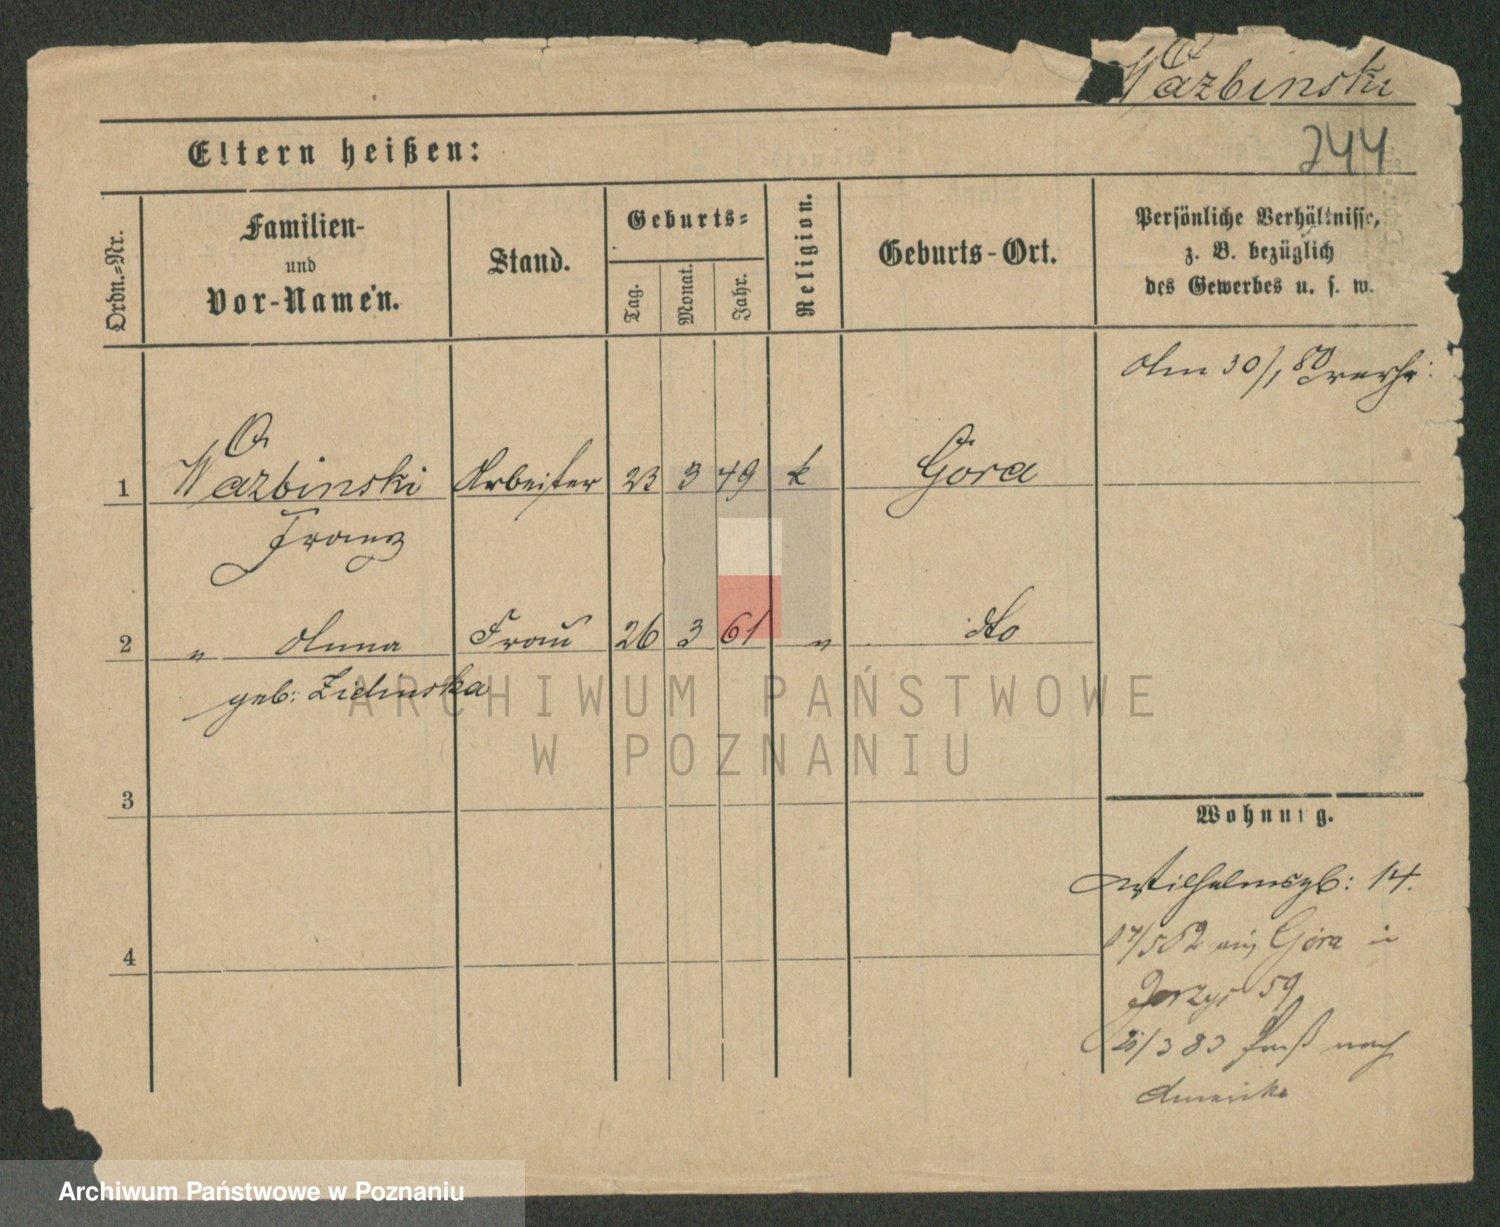 Wazbinski
244
Eltern heißen:
Ordn.=Nr.
Familien-
und
Vor-Namen.
Stand.
Geburts=
Tag.
Monat.
Jahr.
Religion.
Geburts-Ort.
Persönliche Verhältnisse,
z. B. bezüglich
des Gewerbes u. s. w.
Am 30/1 80 verhr:
1 Wazbinski Arbeiter 23 3 49 k Góra
Franz
2 " Anna Frau 26 3 61 " dto
geb: Zielinska
ARCHIWUM PAŃSTWOWE
W POZNANIU
3
Wohnung.
Wilhelmspl: 14.
17/5 82 Góra in
4
59
/3 83 Paß nach
Amerika
Archiwum Państwowe w Poznaniu